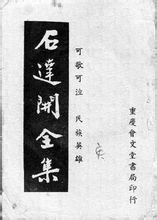 石達開全集
可歌可泣 民族英雄
重慶會文堂書局印行